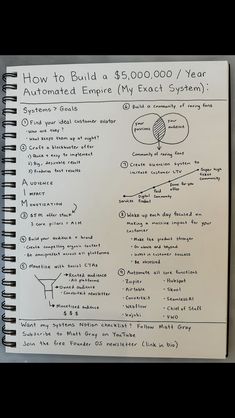 How to Build a $5,000,000 / Year
Automated Empire (My Exact System):
Systems > Goals
① Find your ideal customer avatar
- Who are they?
- What keeps them up at night?
② Craft a blockbuster offer
1) Quick & easy to implement
2) Big, desirable result
3) Endorse fast results
AUDIENCE
IMPACT
MONETIZATION
③ $5M offer stack
3 core pillars = AIM
④ Build your audience + brand
- Create compelling organic content
- Be omnipresent across all platforms
⑤ Monetize with social CTAs
Rented audience
All platforms
Owned audience
Convertkit newsletter
Monetized audience
$ $ $
⑥ Build a community of raving fans
your passions
your audience
Community of raving fans
⑦ Create ascension system to
increase customer LTV
Super high ticket community
Done for you offer
Paid community
Digital product
⑧ Wake up each day focused on
Making a massive impact for your
customer
- Make the product stronger
- Go above and beyond
- Invest in customer success
- Be obsessed
⑨ Automate all core functions
- Zapier
- Airtable
- Convertkit
- Webflow
- Kajabi
- Hubspot
- Skool
- SeamlessAI
- Chief of Staff
Want my systems Notion checklist? Follow Matt Gray
Subscribe to Matt Gray on YouTube
Join the free Founder OS newsletter (link in bio)